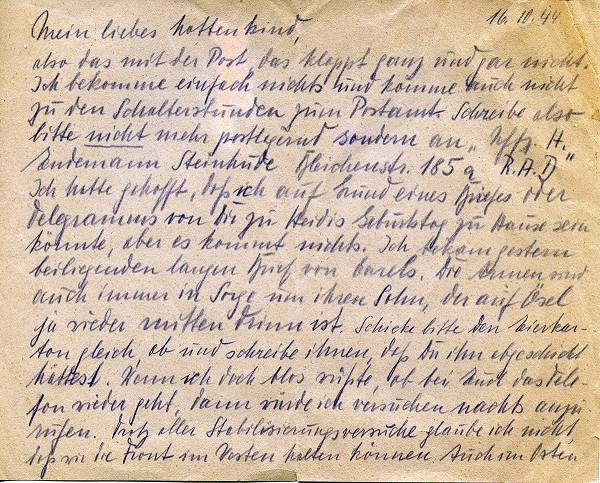 16.10.44
Mein liebes Mottenkind,
also das mit der Post, das klappt ganz und gar nicht.
Ich bekomme einfach nichts und komme auch nicht
zu den Schalterstunden zum Postamt. Schreibe also
bitte nicht mehr postlagernd sondern an „Uffz. H.
Lindemann Steinhude Bleichenstr. 185a R.A.D"
Ich hatte gehofft, daß ich auf Grund eines Briefes oder
Telgramms von Dir zu Heidis Geburtstag zu Hause sein
könnte, aber es kommt nichts. Ich bekam gestern
beiliegenden langen Brief von Barels. Die Armen sind
auch immer in Sorge um ihren Sohn, der auf Ösel
ja wieder mitten drinn ist. Schicke bitte den Eierkar-
ton gleich ab und schreibe ihnen, daß Du ihn abgeschickt
hättest. Wenn ich doch blos wüßte, ob bei Euch das Tele-
fon wieder geht, dann würde ich versuchen nachts anzu-
rufen. Trotz aller Stabilisierungsversuche glaube ich nicht
daß wir die Front im Westen halten können. Auch im Osten